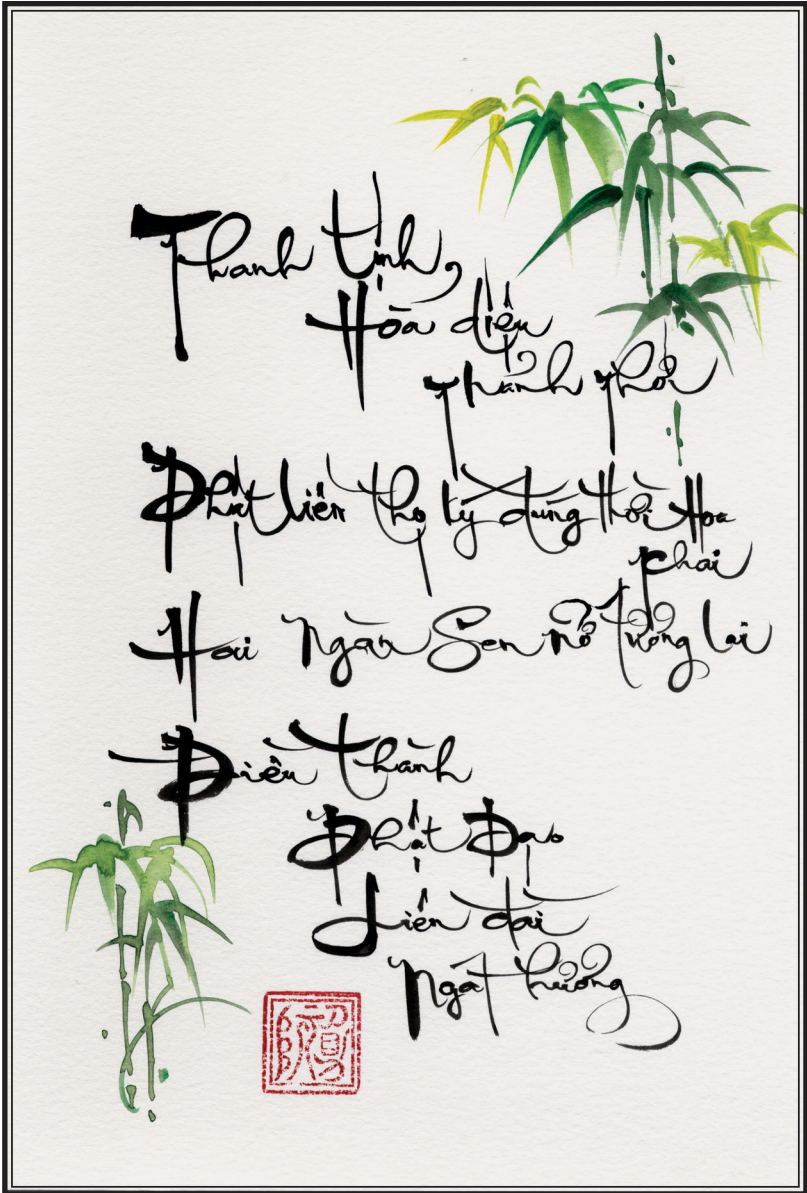 Thanh tịnh,
Hòa diệu
Thảnh thơi
Phật liền thọ ký đúng thời Hoa
phai
Hai Ngàn Sen nở tưởng lai
Điều thành
Phật Đạo
Liên đài
Ngát hương